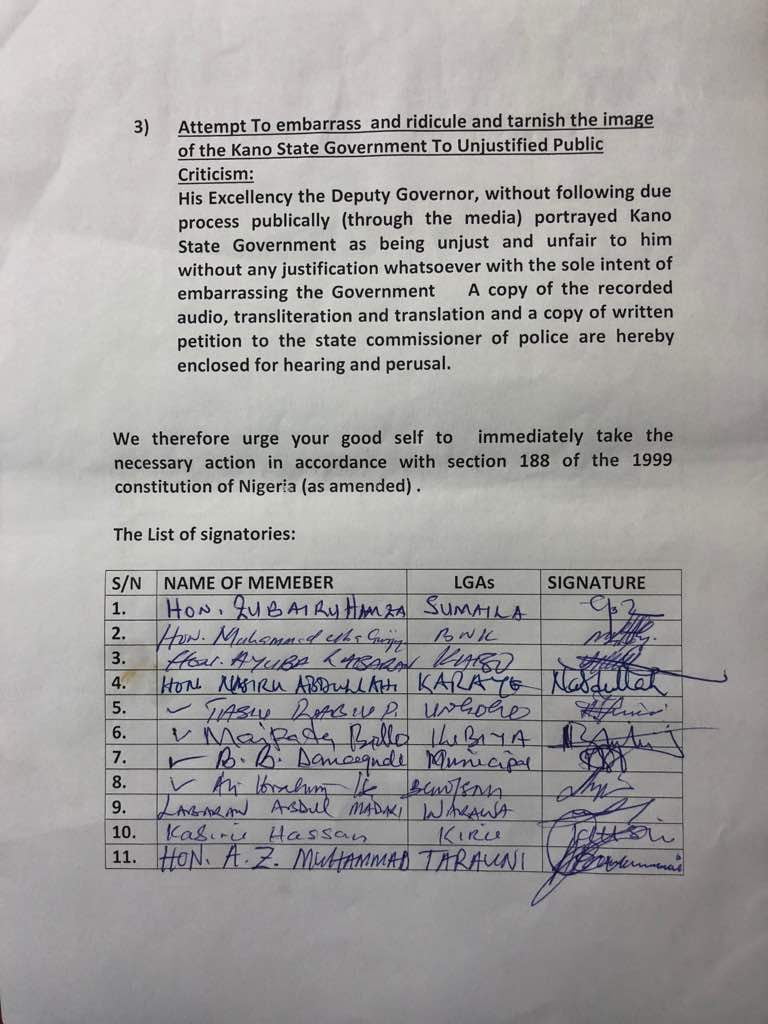 3) Attempt To embarrass and ridicule and tarnish the image
of the Kano State Government To Unjustified Public
Criticism:
His Excellency the Deputy Governor, without following due
process publically (through the media) portrayed Kano
State Government as being unjust and unfair to him
without any justification whatsoever with the sole intent of
embarrassing the Government A copy of the recorded
audio, transliteration and translation and a copy of written
petition to the state commissioner of police are hereby
enclosed for hearing and perusal.
We therefore urge your good self to immediately take the
necessary action in accordance with section 188 of the 1999
constitution of Nigeria (as amended) .
The List of signatories:
S/N NAME OF MEMEBER LGAs SIGNATURE
1. HON. ZUBAIRU HAMZA SUMAILA
2. Hon. Muhammad
3. Hon. AYUBA LABARAN KABO
4. HON NASIRU ABDULLAHI KARAYE Nabdullah
5. UNGOGO
6. Bello KIBIYA
7. B. B. Danagundi Municipal
8. Ali
9. LABARAN ABDUL MADARI WARAWA
10. Kabiru Hassan KIRU
11. HON. A. Z. MUHAMMAD TARAUNI